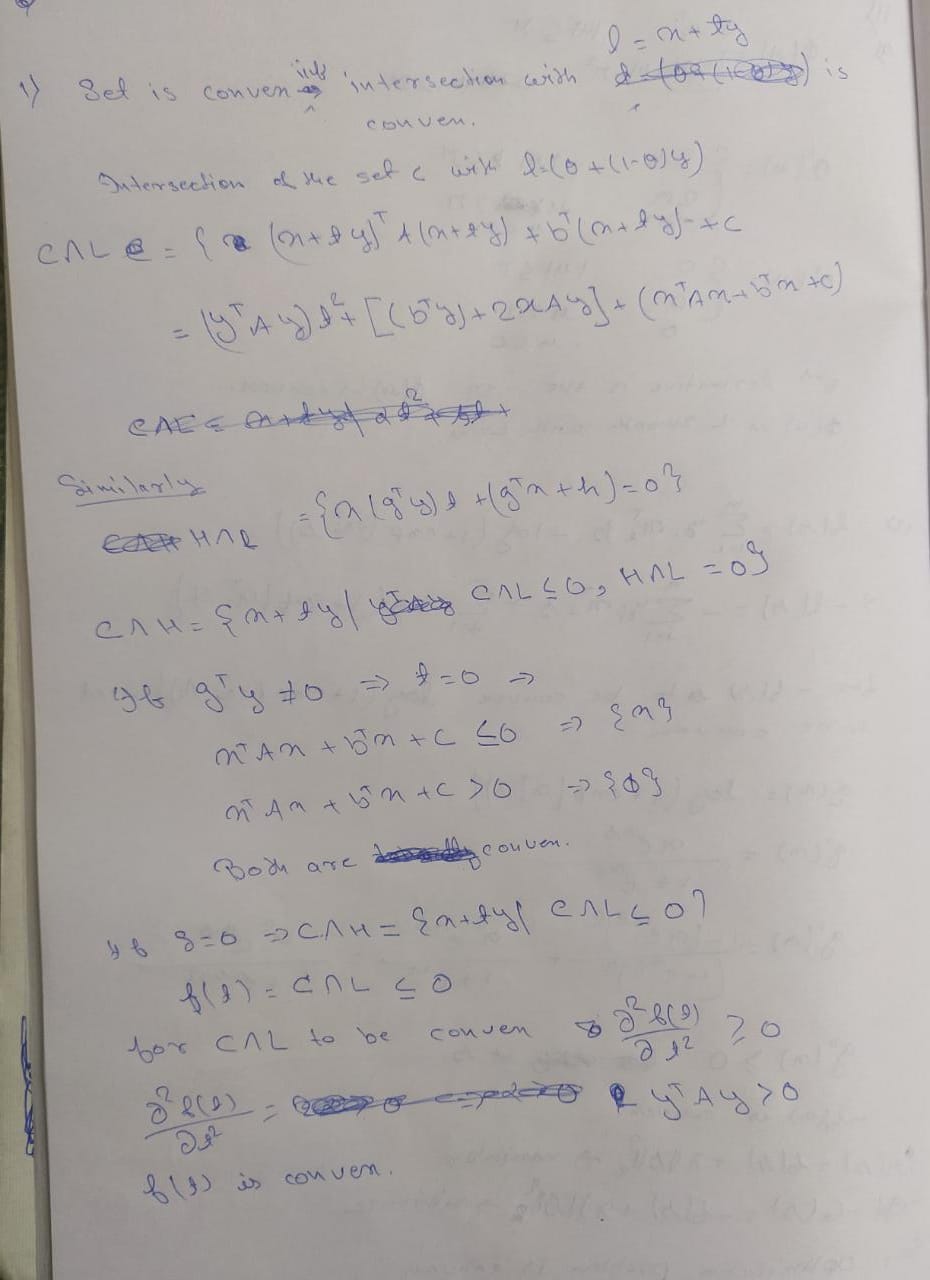 l = x + ty
1) Set is convex iff intersection with is
convex.
Intersection of the set C with l=(θ + (1-θ)y)
C∩L = { (x+ty)ᵀ A(x+ty) + bᵀ(x+ty) + c
= (yᵀAy)t² + [(bᵀy) + 2xAy] + (xᵀAx + bᵀx + c)
Similarly
H∩L = {x (gᵀy)t + (gᵀx + h) = 0}
C∩H = {x + ty | C∩L ≤ 0, H∩L = 0}
If gᵀy ≠ 0 ⇒ t = 0 ⇒
xᵀAx + bᵀx + c ≤ 0 ⇒ {x}
xᵀAx + bᵀx + c > 0 ⇒ {ϕ}
Both are convex.
If g=0 ⇒ C∩H = {x+ty | C∩L ≤ 0}
f(t) = C∩L ≤ 0
for C∩L to be convex ∂²f(t)/∂t² ≥ 0
∂²f(t)/∂t² = yᵀAy > 0
f(t) is convex.